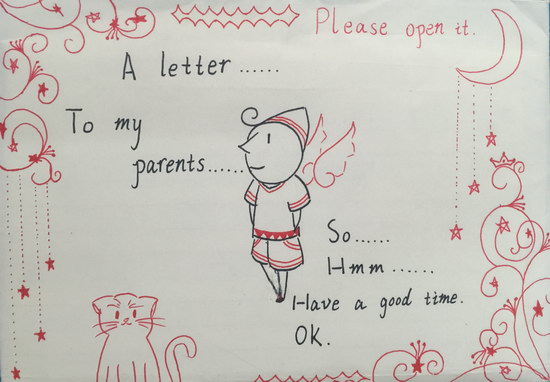 Please open it.
A letter ......
To my
parents......
So......
Hmm ......
Have a good time.
OK.